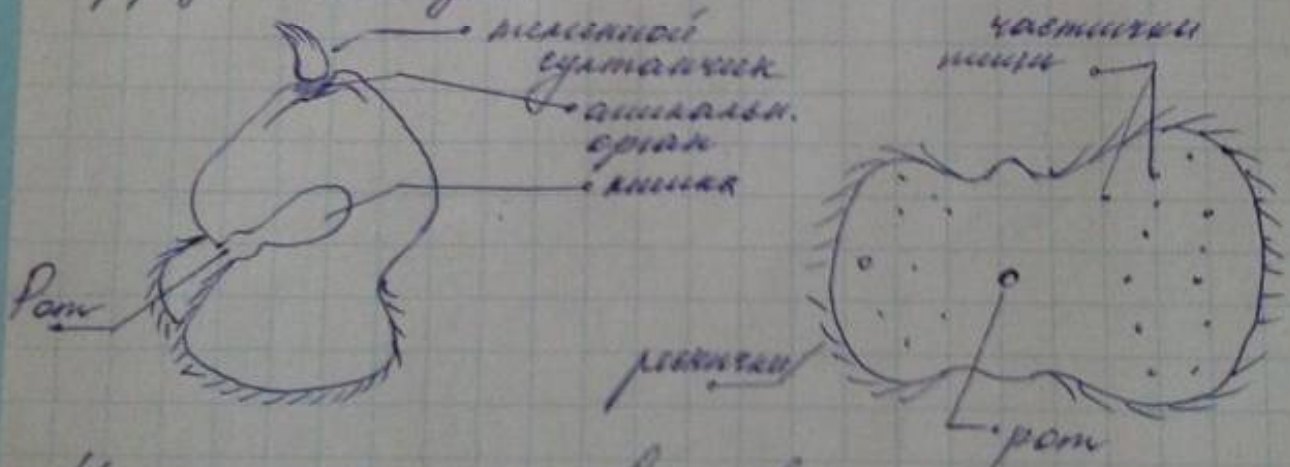 теменной
султанчик
апикальн.
орган
кишка
Рот
частички
пищи
реснички
рот